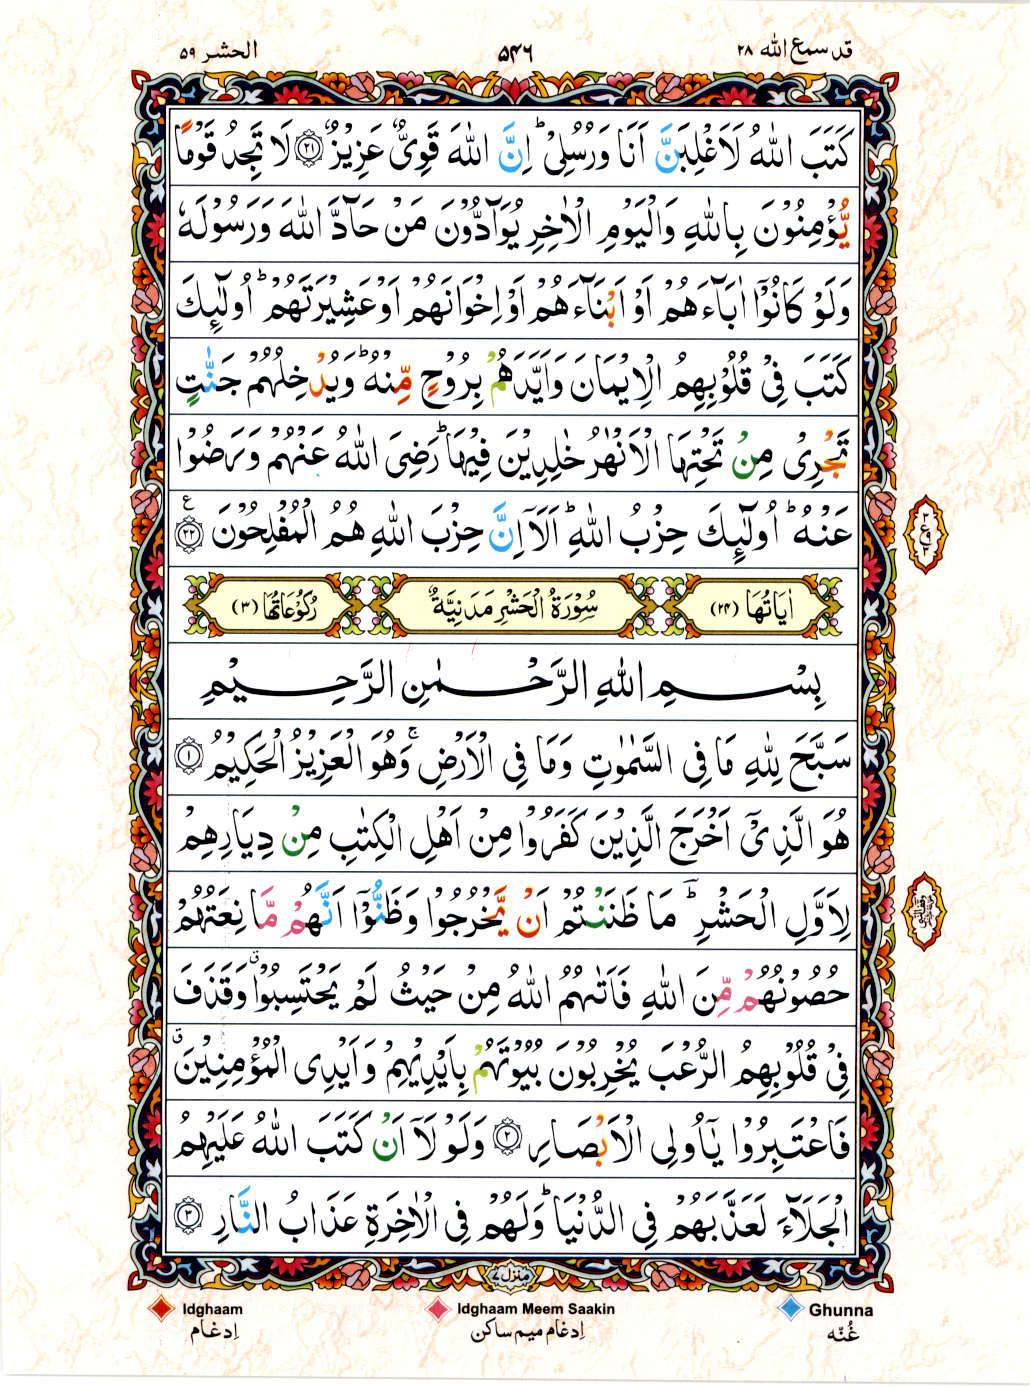 قد سمع الله ۲۸
۵۴۶
الحشر ۵۹
كَتَبَ اللّٰهُ لَاَغْلِبَنَّ اَنَا وَرُسُلِیْ ؕ اِنَّ اللّٰهَ قَوِیٌّ عَزِیْزٌ ﴿۲۱﴾ لَا تَجِدُ قَوْمًا
یُّؤْمِنُوْنَ بِاللّٰهِ وَالْیَوْمِ الْاٰخِرِ یُوَآدُّوْنَ مَنْ حَآدَّ اللّٰهَ وَرَسُوْلَهٗ
وَلَوْ كَانُوْۤا اٰبَآءَهُمْ اَوْ اَبْنَآءَهُمْ اَوْ اِخْوَانَهُمْ اَوْ عَشِیْرَتَهُمْ ؕ اُولٰٓئِكَ
كَتَبَ فِیْ قُلُوْبِهِمُ الْاِیْمَانَ وَاَیَّدَهُمْ بِرُوْحٍ مِّنْهُ ؕ وَیُدْخِلُهُمْ جَنّٰتٍ
تَجْرِیْ مِنْ تَحْتِهَا الْاَنْهٰرُ خٰلِدِیْنَ فِیْهَا ؕ رَضِیَ اللّٰهُ عَنْهُمْ وَرَضُوْا
عَنْهُ ؕ اُولٰٓئِكَ حِزْبُ اللّٰهِ ؕ اَلَاۤ اِنَّ حِزْبَ اللّٰهِ هُمُ الْمُفْلِحُوْنَ ﴿۲۲﴾ ع
اٰیَاتُهَا (۲۴) سُوْرَةُ الْحَشْرِ مَدَنِیَّةٌ رُكُوْعَاتُهَا (۳)
بِسْمِ اللّٰهِ الرَّحْمٰنِ الرَّحِیْمِ
سَبَّحَ لِلّٰهِ مَا فِی السَّمٰوٰتِ وَمَا فِی الْاَرْضِ ۚ وَهُوَ الْعَزِیْزُ الْحَكِیْمُ ﴿۱﴾
هُوَ الَّذِیْۤ اَخْرَجَ الَّذِیْنَ كَفَرُوْا مِنْ اَهْلِ الْكِتٰبِ مِنْ دِیَارِهِمْ
لِاَوَّلِ الْحَشْرِ ؔ مَا ظَنَنْتُمْ اَنْ یَّخْرُجُوْا وَظَنُّوْۤا اَنَّهُمْ مَّا نِعَتُهُمْ
حُصُوْنُهُمْ مِّنَ اللّٰهِ فَاَتٰىهُمُ اللّٰهُ مِنْ حَیْثُ لَمْ یَحْتَسِبُوْا ۗ وَقَذَفَ
فِیْ قُلُوْبِهِمُ الرُّعْبَ یُخْرِبُوْنَ بُیُوْتَهُمْ بِاَیْدِیْهِمْ وَاَیْدِی الْمُؤْمِنِیْنَ ۗ
فَاعْتَبِرُوْا یٰۤاُولِی الْاَبْصَارِ ﴿۲﴾ وَلَوْلَاۤ اَنْ كَتَبَ اللّٰهُ عَلَیْهِمُ
الْجَلَآءَ لَعَذَّبَهُمْ فِی الدُّنْیَا ؕ وَلَهُمْ فِی الْاٰخِرَةِ عَذَابُ النَّارِ ﴿۳﴾
منزل ۷
Ghunna
غُنّه
Idghaam Meem Saakin
اِدغام میم ساکن
Idghaam
اِدغام